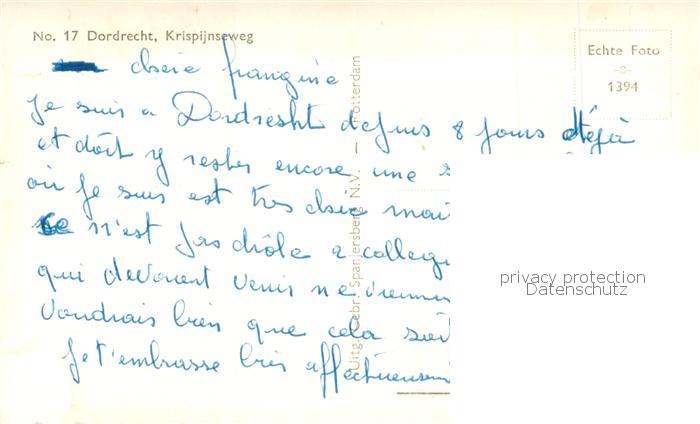 No. 17 Dordrecht, Krispijnseweg
Echte Foto
1394
chere frangine
Je suis a Dordrecht depuis 8 jours déjà
et doit y rester encore une
où je suis est très chere mai
ce n'est pas drôle 2 collegu
qui devaient venir ne viennen
Voudrais bien que cela soit
Je t'embrasse bien affectueusem
Uitg. Gebr. Spanjersberg N.V. — Rotterdam
privacy protection
Datenschutz